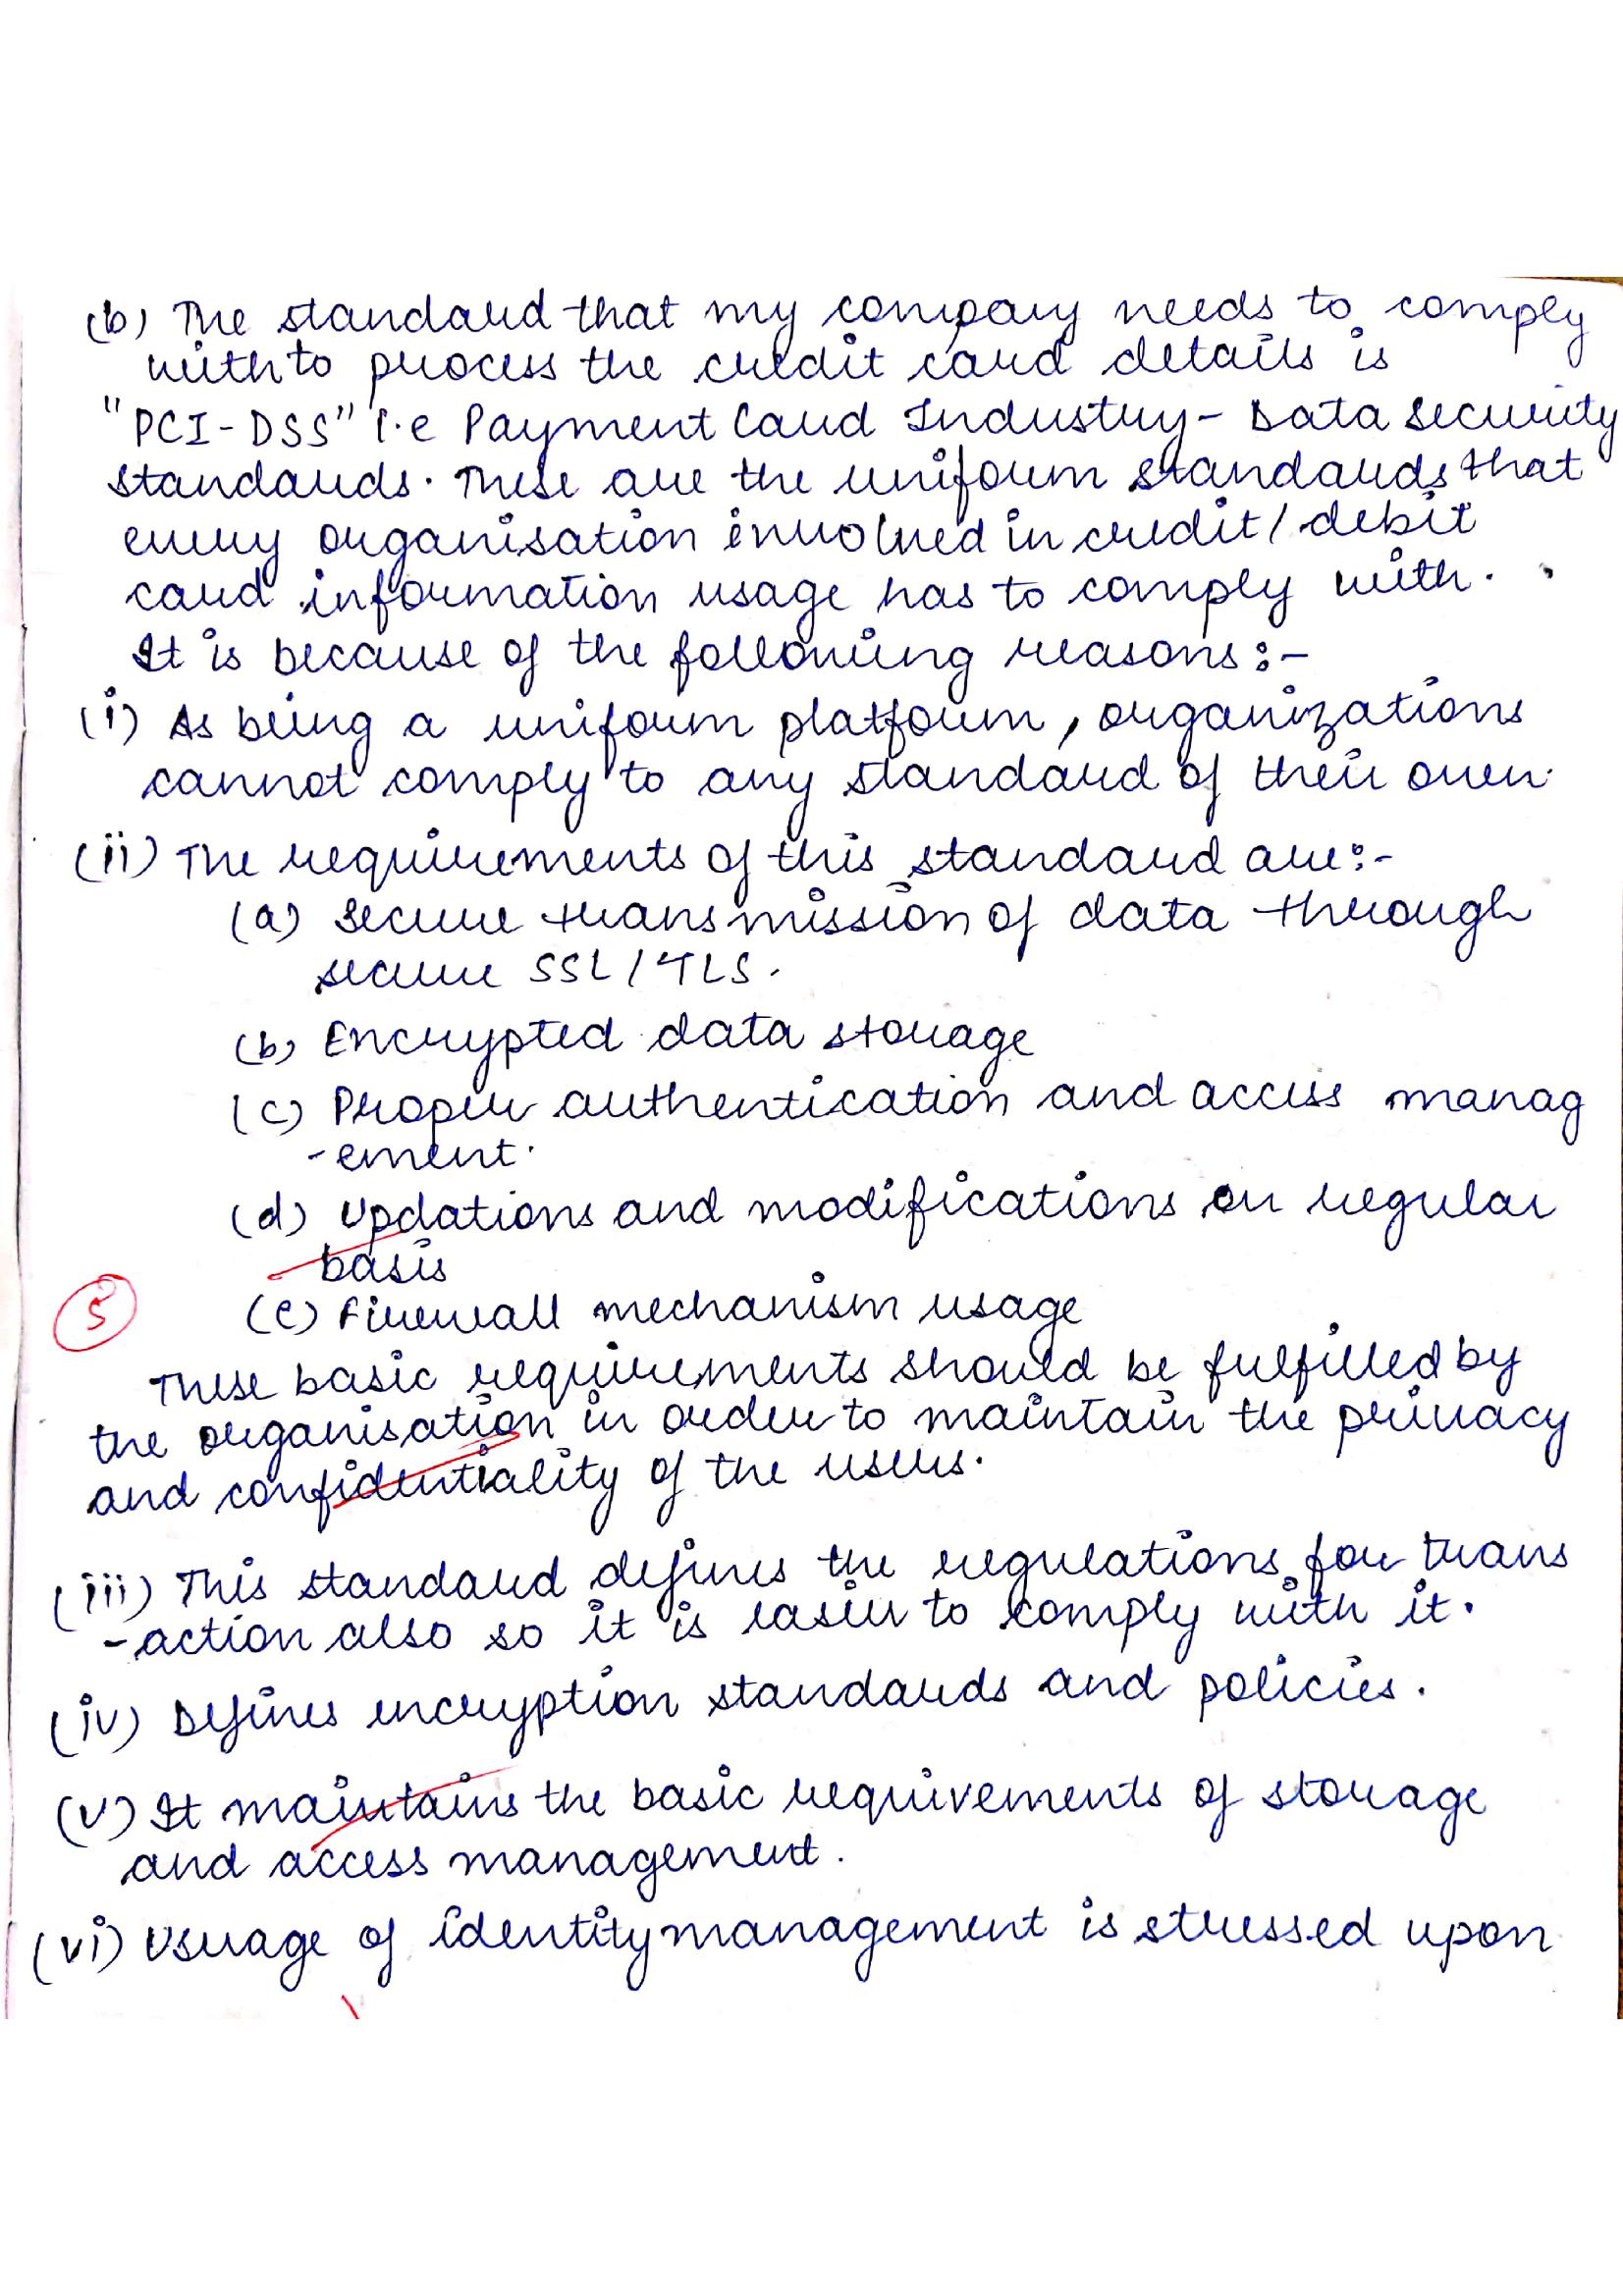 (b) The standard that my company needs to comply
with to process the credit card details is
"PCI-DSS" i.e Payment Card Industry- Data Security
standards. These are the uniform standards that
every organisation involved in credit/debit
card information usage has to comply with.
It is because of the following reasons:-
(i) As being a uniform platform, organizations
cannot comply to any standard of their own.
(ii) The requirements of this standard are:-
(a) Secure transmission of data through
secure SSL/TLS.
(b) Encrypted data storage
(c) Proper authentication and access manag
-ement.
(d) Updations and modifications on regular
basis
5
(e) Firewall mechanism usage
These basic requirements should be fulfilled by
the organisation in order to maintain the privacy
and confidentiality of the users.
(iii) This standard defines the regulations for trans
-action also so it is easier to comply with it.
(iv) Defines encryption standards and policies.
(v) It maintains the basic requirements of storage
and access management.
(vi) Usuage of identity management is stressed upon